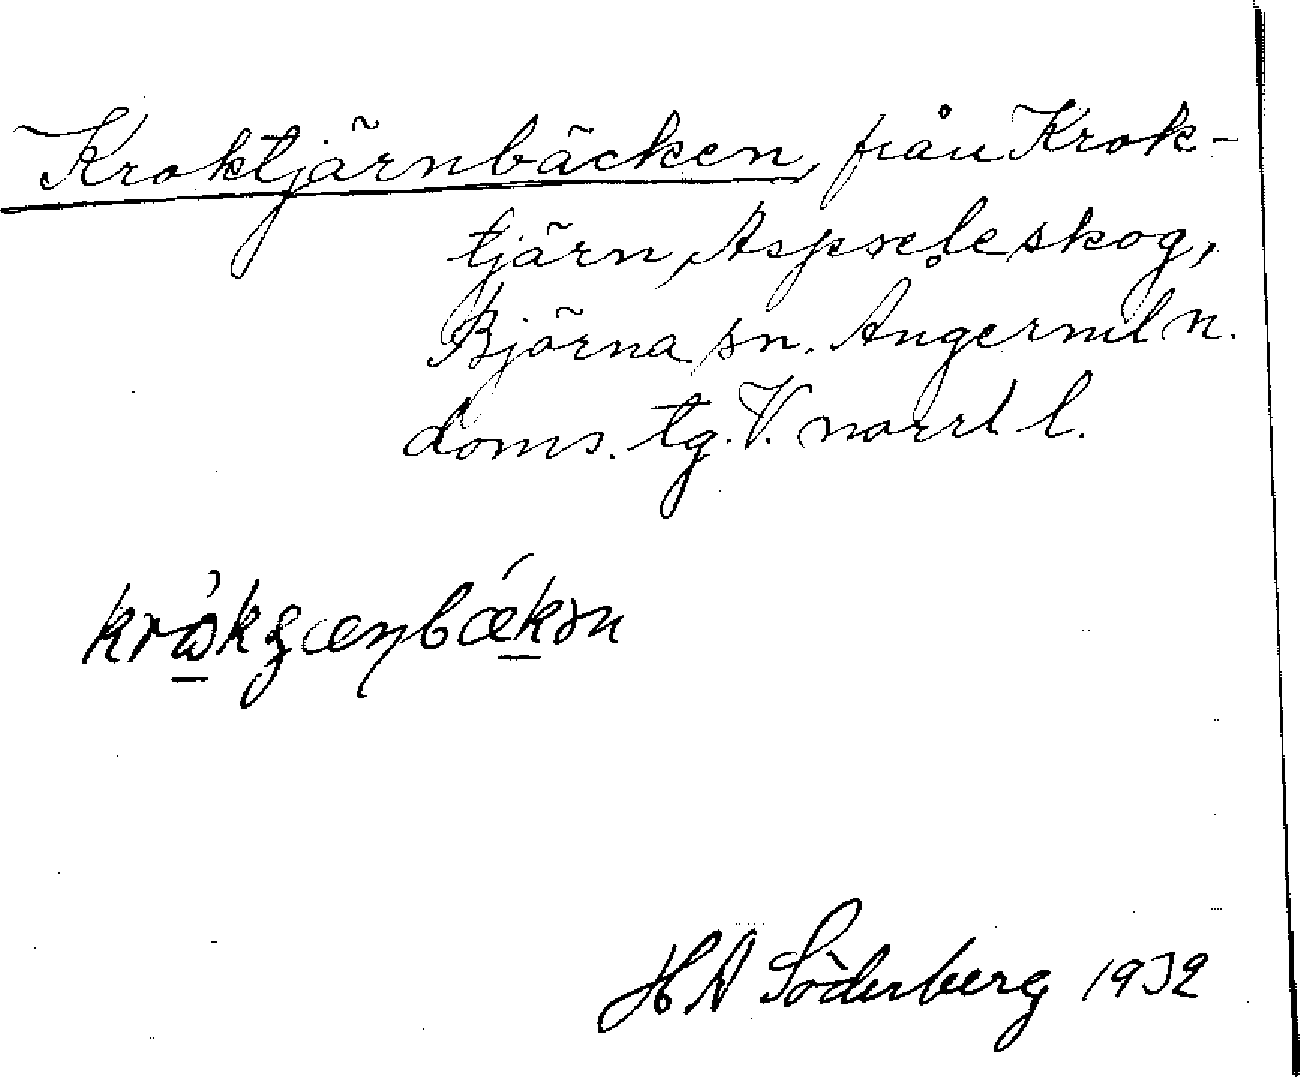 Kroktjärnbäcken, från Krok-
tjärn, Aspsele skog,
Björna sn. Ångermln.
doms. tg. V. norrl l.
HA Söderberg 1932